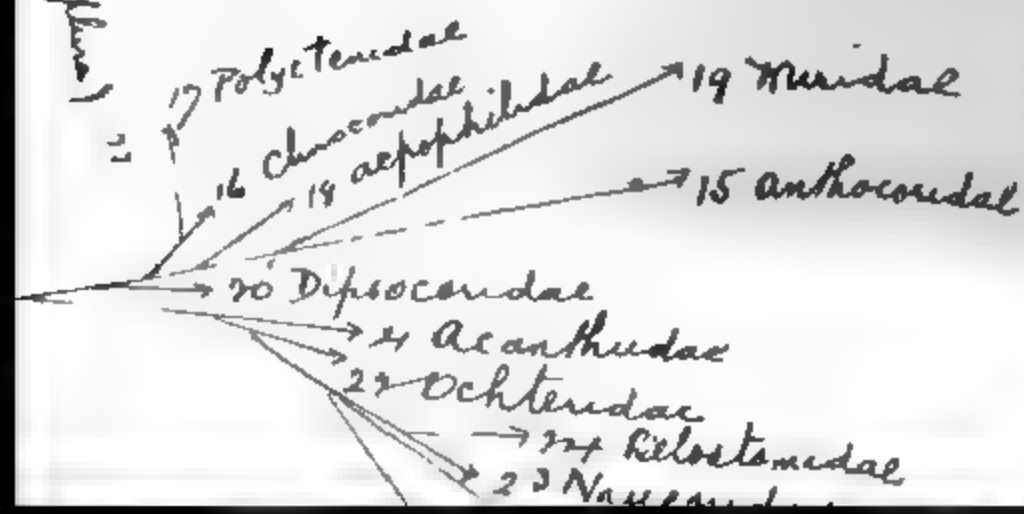 17 Polyctenidae
16 Cimicoridae
18 aepophilidae
19 Miridae
15 anthocoridae
20 Dipsocoridae
Acanthiidae
22 Ochteridae
24 Belostomidae
23